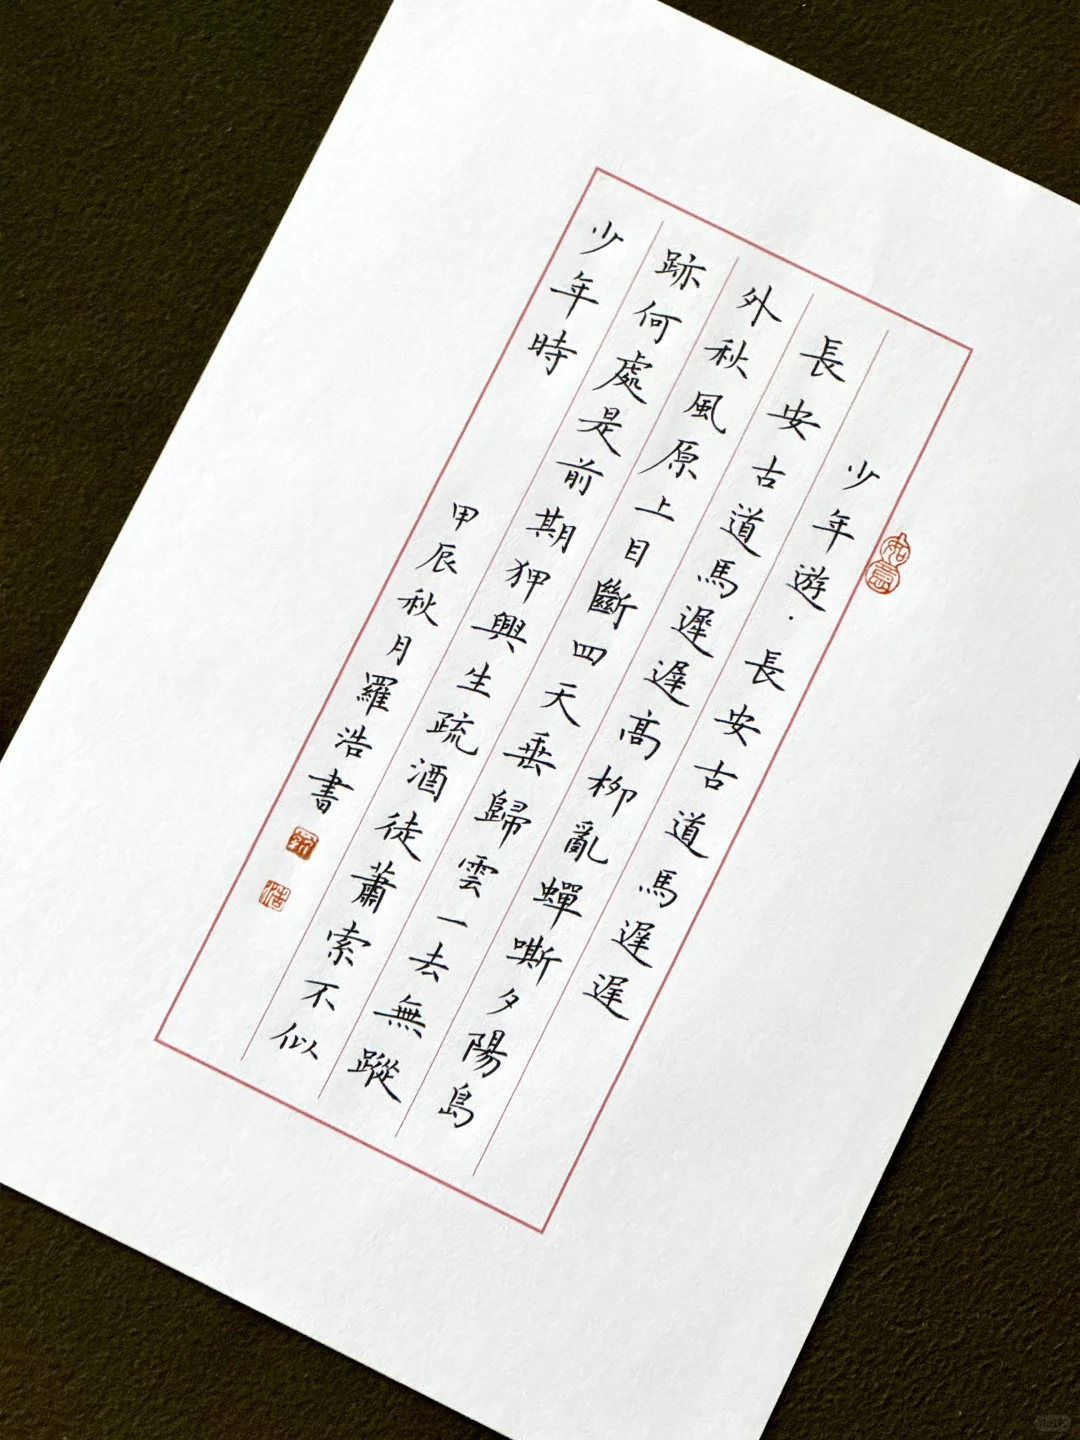 少年遊·長安古道馬遲遲
如意
長安古道馬遲遲高柳亂蟬嘶夕陽島
外秋風原上目斷四天垂歸雲一去無蹤
跡何處是前期狎興生疏酒徒蕭索不似
少年時
甲辰秋月羅浩書
浩